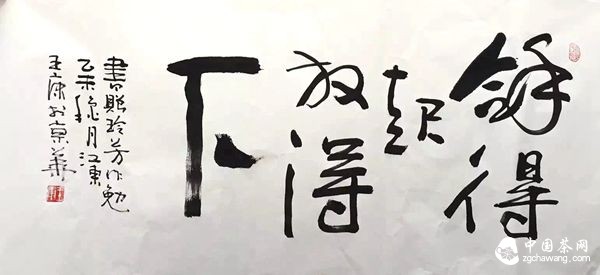 拿得
起
放得
下
書貽玲芳作勉
乙未秋月江東
於京華
中国茶网
zgchawang.com